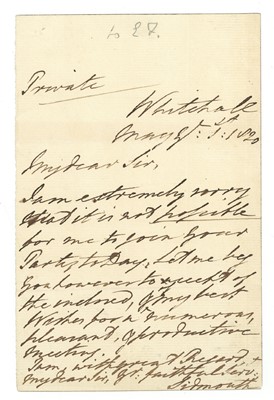 Private
Whitehall
My dear Sir,
I am extremely sorry
that it is not possible
for me to join your
Party to Day, Let me beg
you however to accept of
the inclosed, & my best
Wishes for a numerous,
pleasant, & productive
meeting.
I am, with great Regard,
my dear Sir, Yr. faithful Servt.
Sidmouth